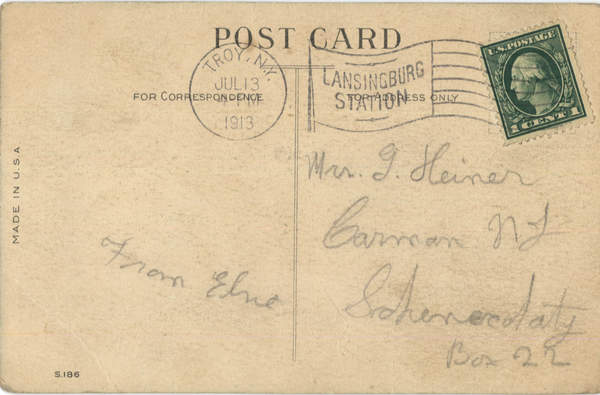 POST CARD
TROY, N.Y.
JUL 13
1913
LANSINGBURG
STATION
U.S. POSTAGE
1 CENT 1
FOR CORRESPONDENCE
FOR ADDRESS ONLY
MADE IN U.S.A
Mrs. J. Heiner
Carman NY
Schenecdaty
Box 22
From Elsie
S.186